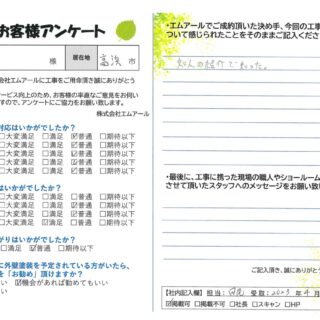 お客様アンケート
様 居住地 高浜 市
会社エムアールに工事をご用命頂き誠にありがとう
ービス向上のため、お客様の率直なご意見をお伺い
すので、アンケートにご協力をお願い致します。
株式会社エムアール
対応はいかがでしたか？
□大変満足 □満足 ☑普通 □期待以下
□大変満足 □満足 ☑普通 □期待以下
□大変満足 □満足 ☑普通 □期待以下
□大変満足 □満足 ☑普通 □期待以下
はいかがでしたか？
□大変満足 □満足 ☑普通 □期待以下
□大変満足 □満足 ☑普通 □期待以下
□大変満足 □満足 ☑普通 □期待以下
□大変満足 □満足 ☑普通 □期待以下
がりはいかがでしたか？
□満足 ☑普通 □期待以下
に外壁塗装を予定されている方がいたら、
を「お勧め」頂けますか？
い ☑機会があれば勧めてもいい
い
・エムアールでご成約頂いた決め手、今回の工事
ついて感じられたことをそのままご記入ください
知人の紹介で知った。
・最後に、工事に携った現場の職人やショールーム
させて頂いたスタッフへのメッセージをお願い致
ご記入頂き、誠にありがとう
【社内記入欄】 担当： 受取：2023 年 4 月
☑掲載可 □掲載不可 □社長 □スキャン □HP